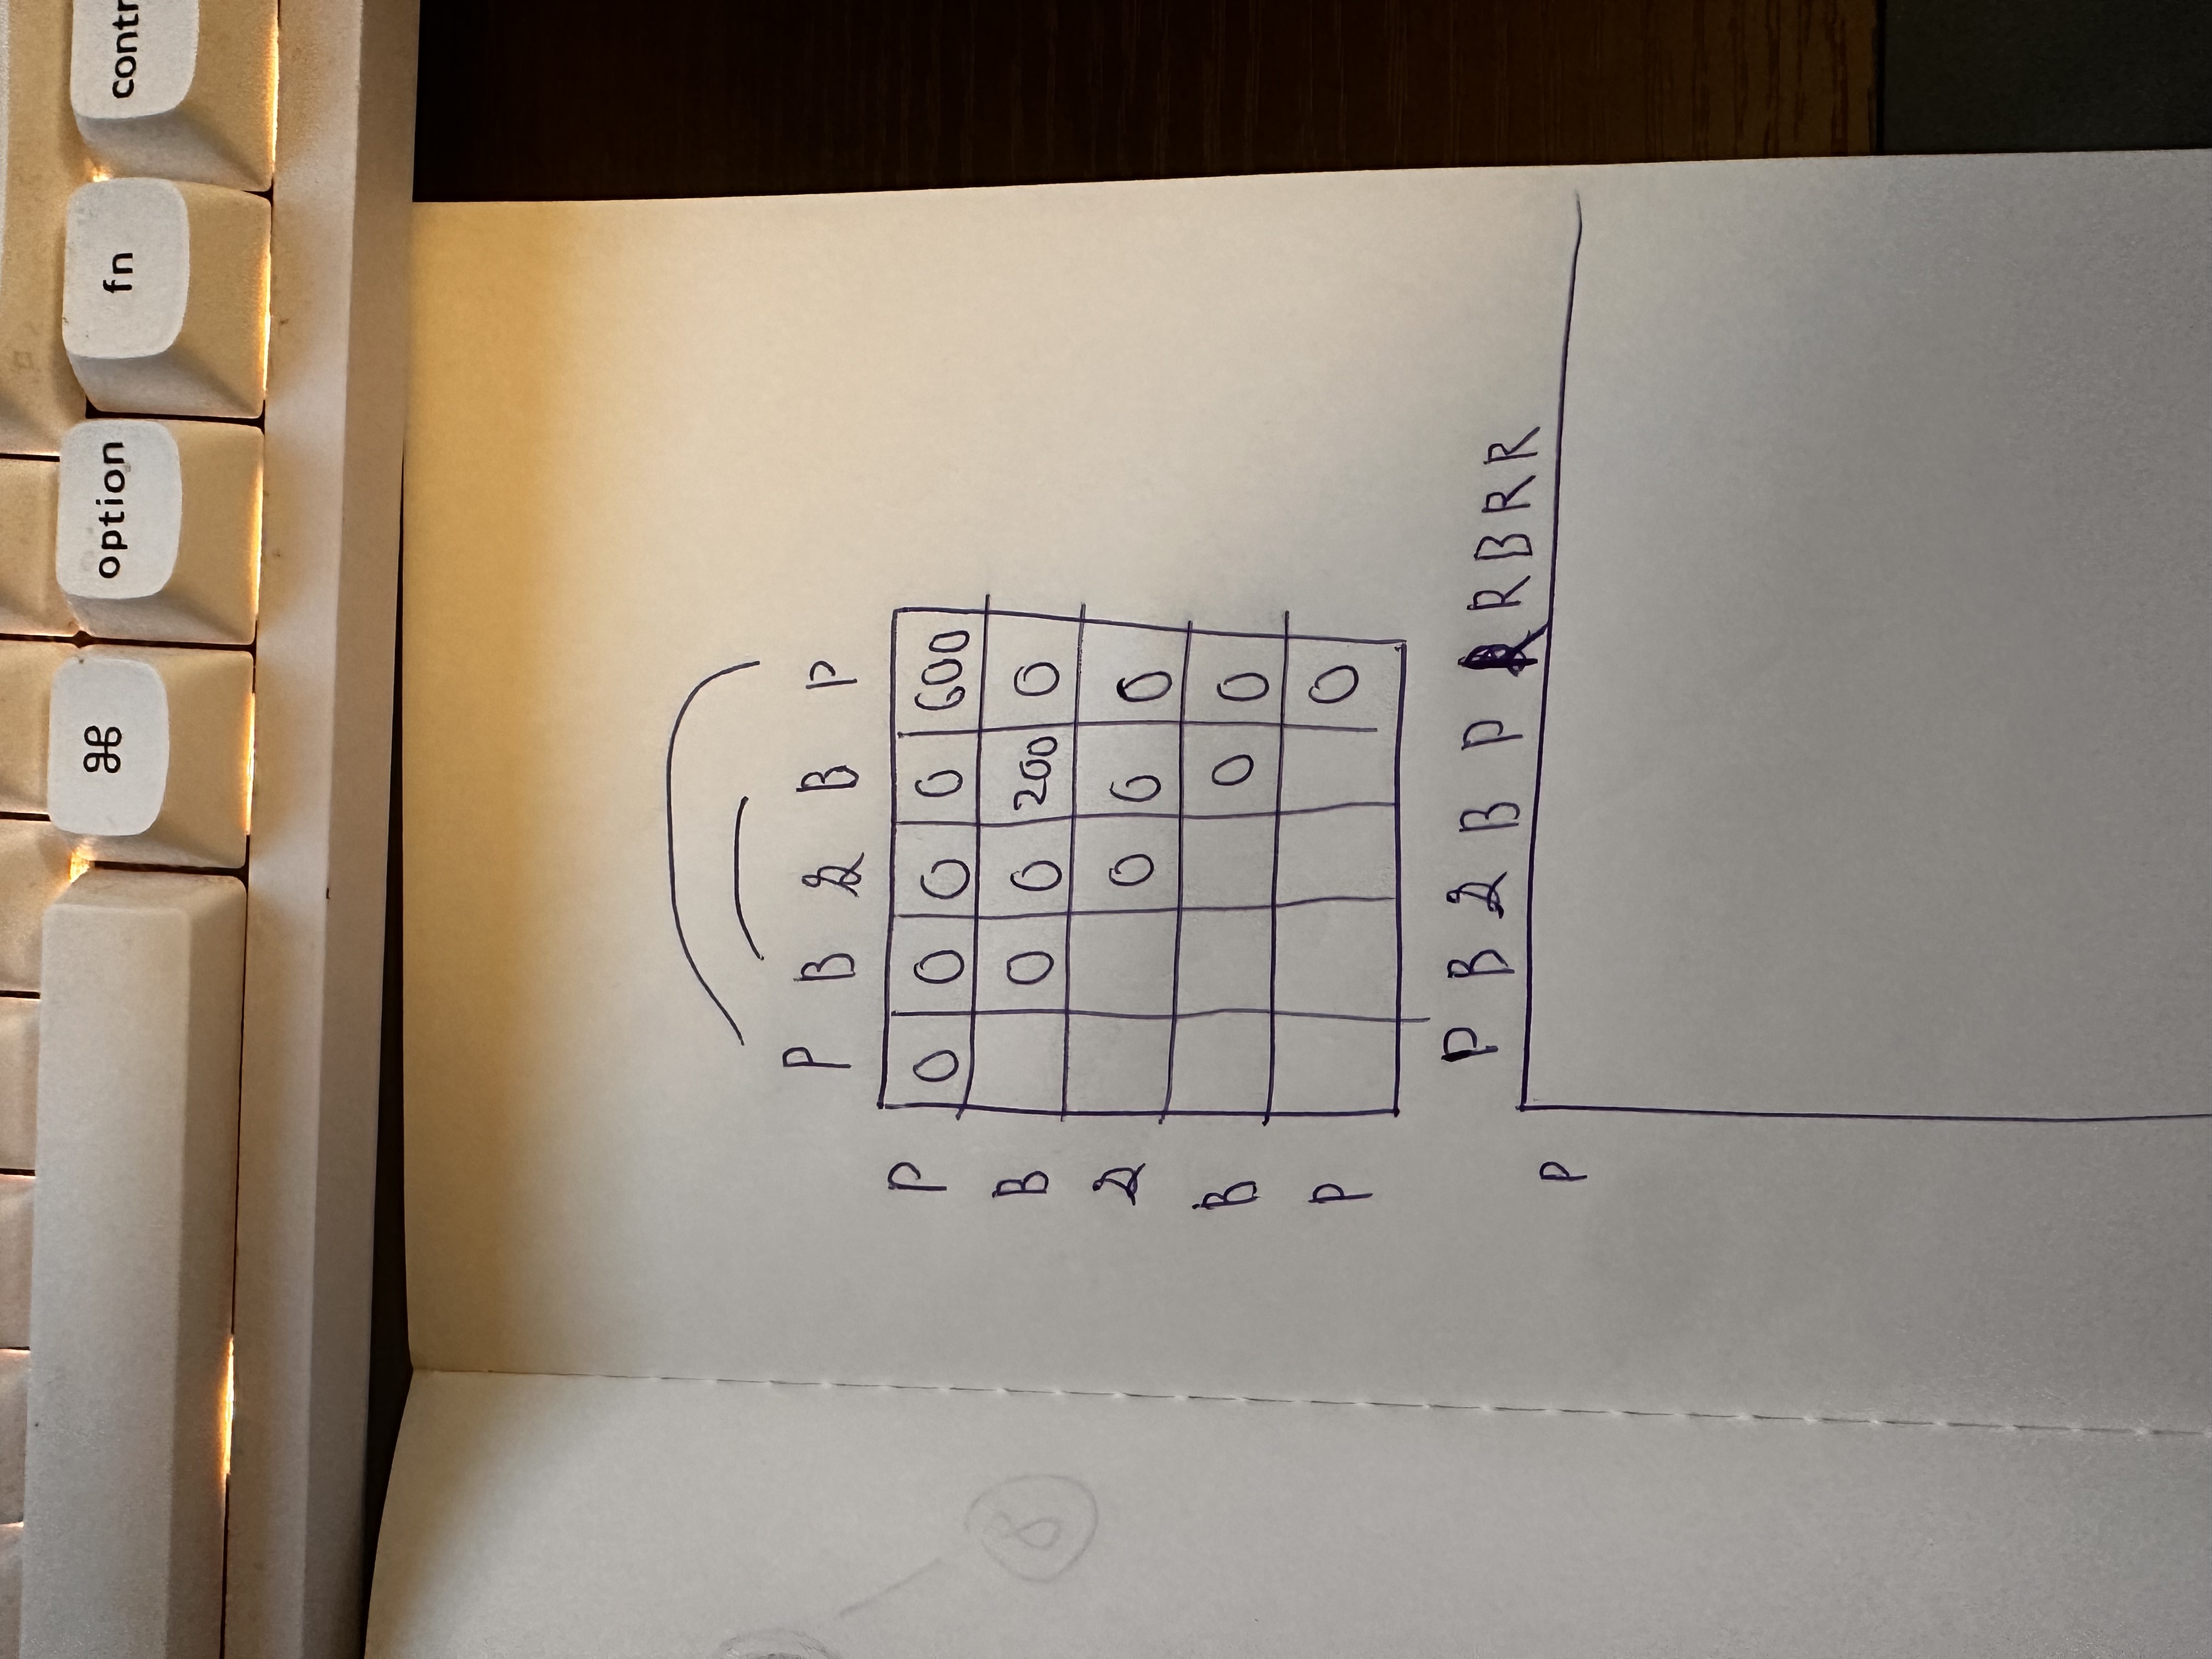 ⌘ option fn contr
P B 2 B P
P 0 0 0 0 600
B 0 0 200 0
2 0 0 0
B 0 0
P 0
8
P B 2 B P R B R R
P